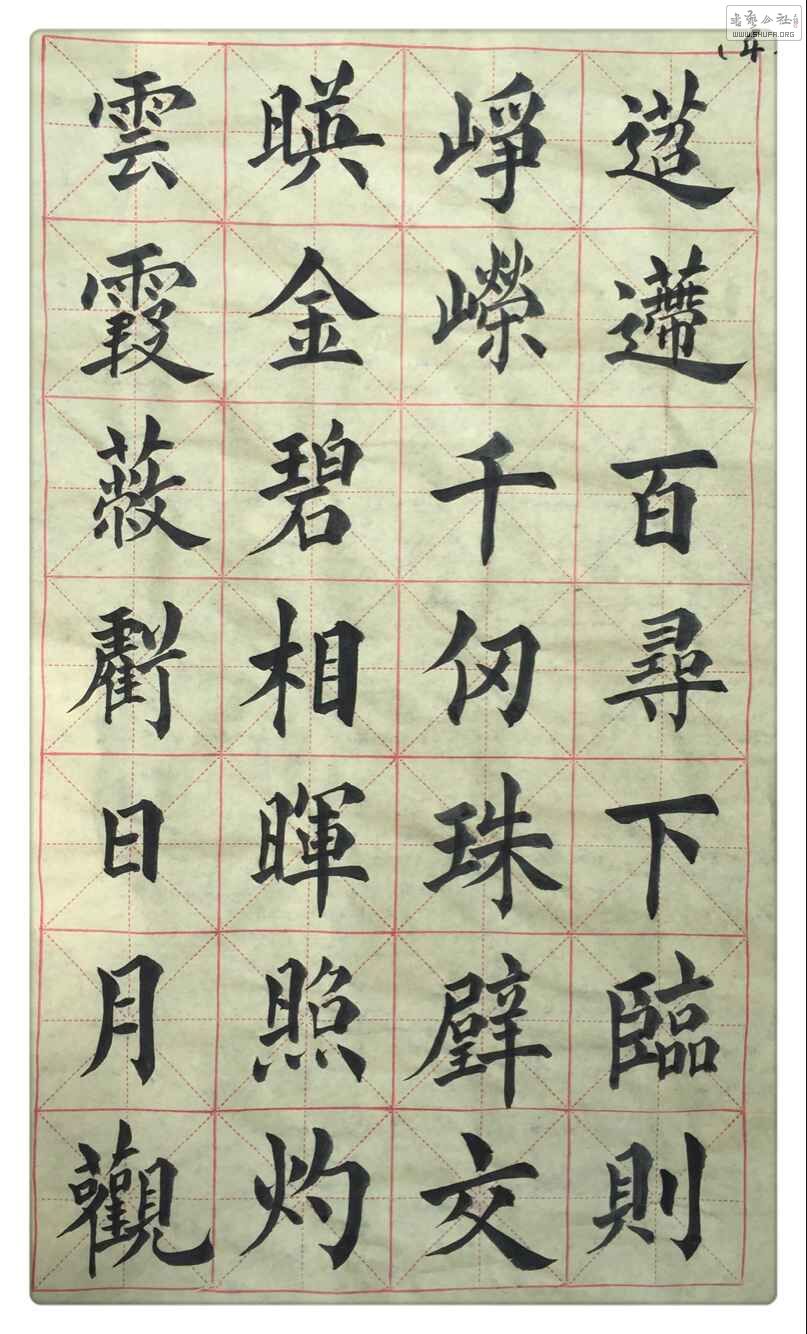 书艺公社
WWW.SHUFA.ORG
14.
迢遰百尋下臨則
崢嶸千仞珠璧交
暎金碧相暉照灼
雲霞蔽虧日月觀